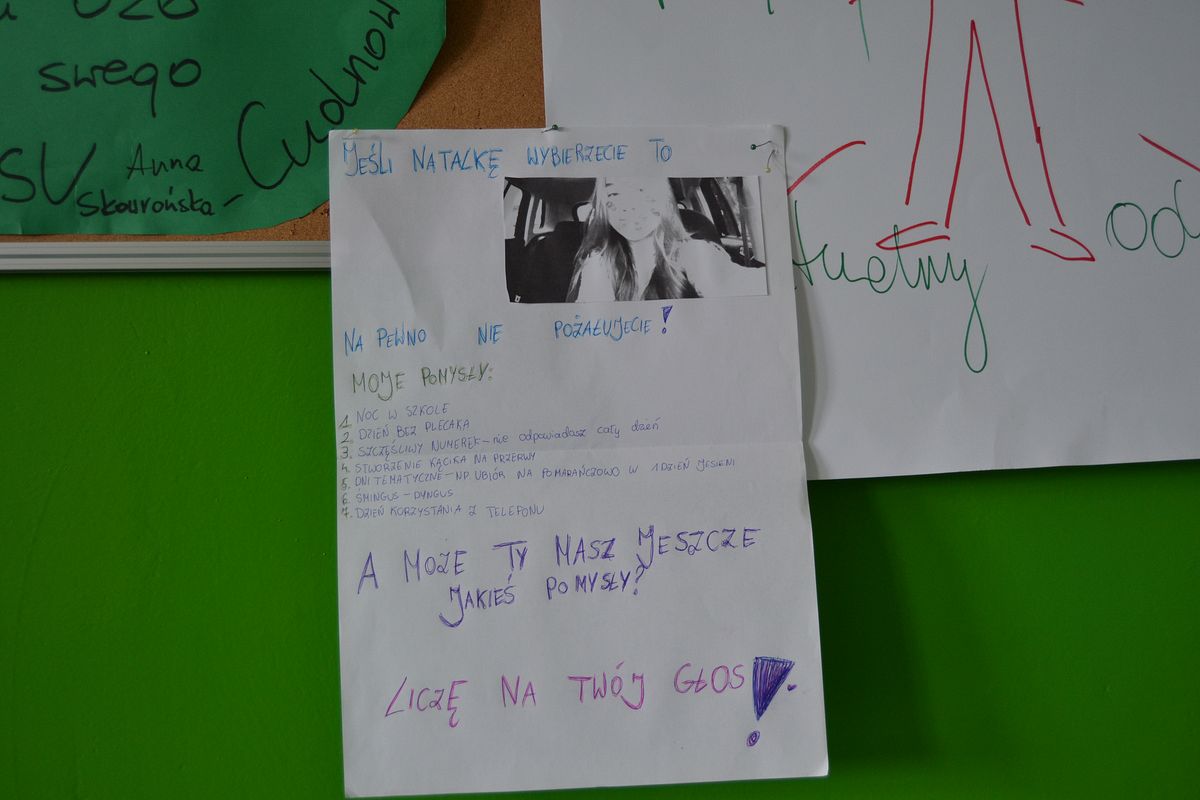 swego
SU Anna
Skowrońska-
Cudnow
JEŚLI NATALKĘ WYBIERZECIE TO
NA PEWNO NIE POŻAŁUJECIE!
MOJE POMYSŁY:
1. NOC W SZKOLE
2. DZIEŃ BEZ PLECAKA
3. SZCZĘŚLIWY NUMEREK-nie odpowiadasz cały dzień
4. STWORZENIE KĄCIKA NA PRZERWY
5. DNI TEMATYCZNE-NP. UBIÓR NA POMARAŃCZOWO W 1 DZIEŃ JESIENI
6. ŚMINGUS-DYNGUS
7. DZIEŃ KORZYSTANIA Z TELEFONU
A MOŻE TY MASZ JESZCZE
JAKIEŚ POMYSŁY?
LICZĘ NA TWÓJ GŁOS!
od